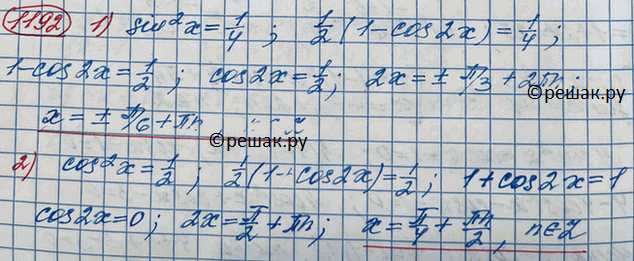 1192 1) sin²x = 1/4 ; 1/2 (1-cos2x) = 1/4 ;
1-cos2x = 1/2 ; cos2x = 1/2 ; 2x = ± π/3 + 2πn ;
©решак.ру
x = ± π/6 + πn
©решак.ру
2) cos²x = 1/2 ; 1/2 (1+cos2x) = 1/2 ; 1+cos2x = 1
cos2x = 0 ; 2x = π/2 + πn ; x = π/4 + πn/2 , n∈Z